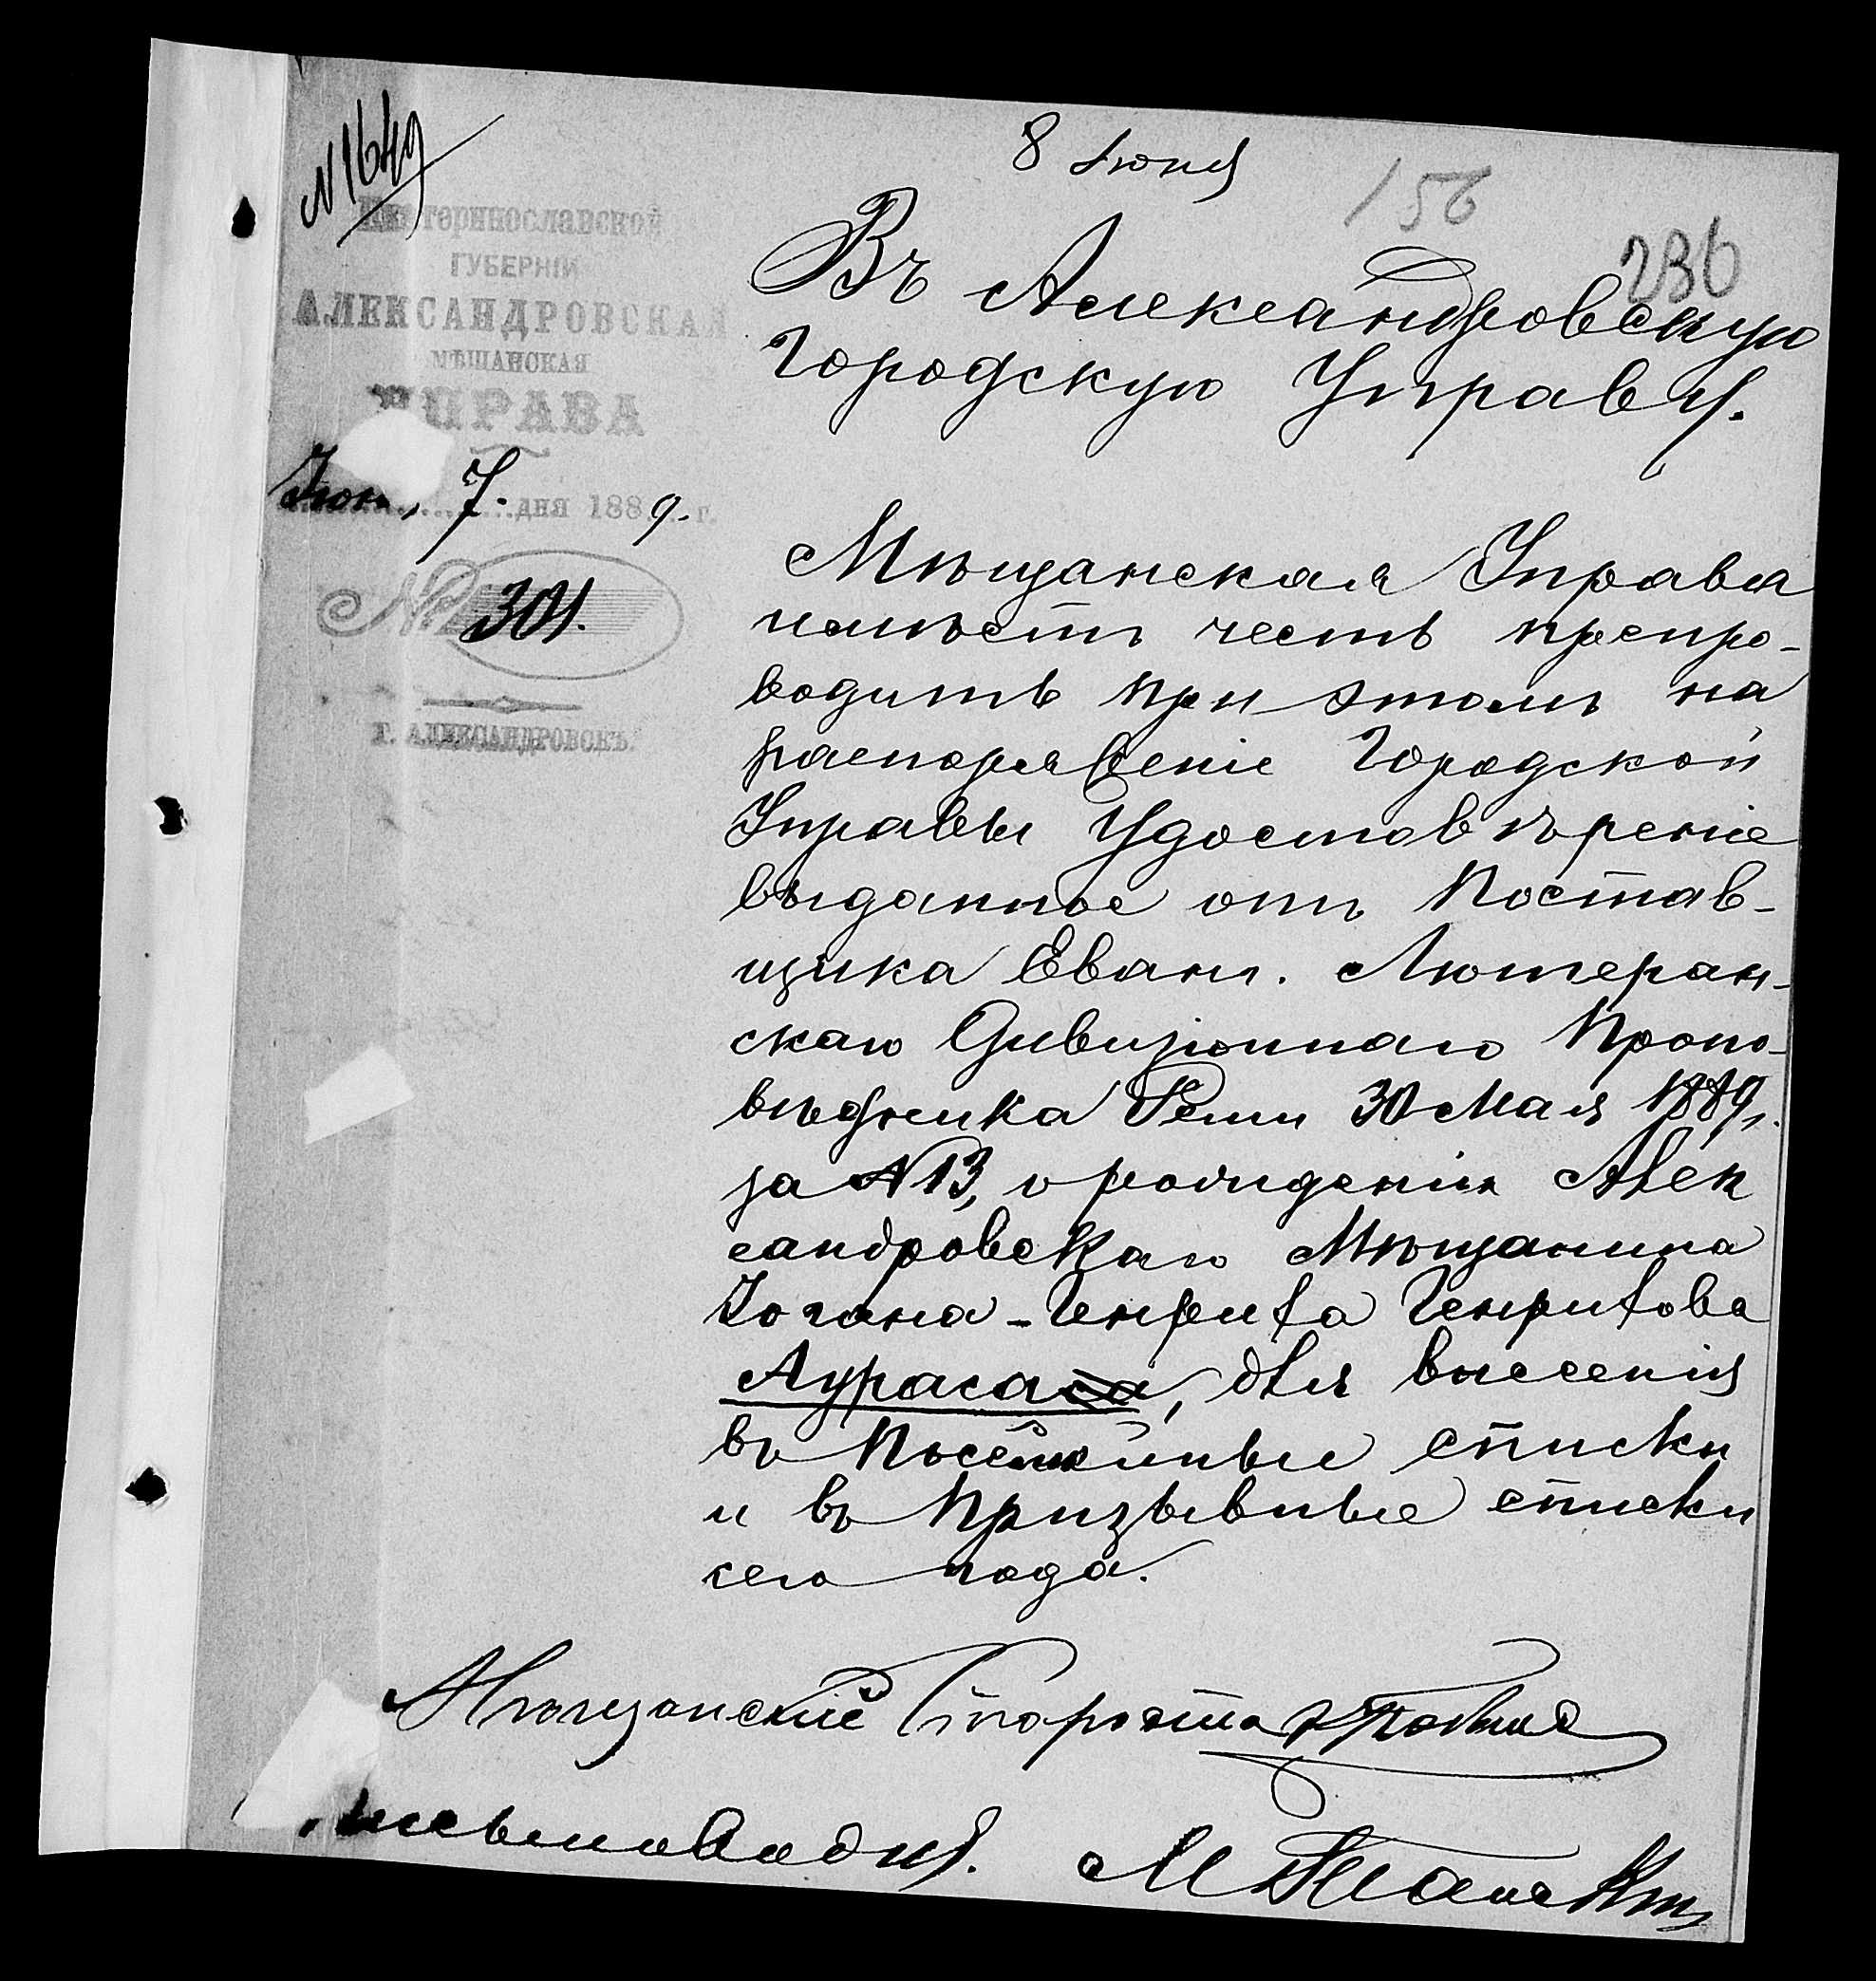 № 1649
8 Июня
156
236
Екатеринославской
ГУБЕРНІИ
АЛЕКСАНДРОВСКАЯ
МѢЩАНСКАЯ
УПРАВА
Июн 7. дня 1889. г.
№ 301.
Г. АЛЕКСАНДРОВСКЪ.
Въ Александровскую
Городскую Управу.
Мѣщанская Управа
имѣетъ честь препро-
водить при этомъ на
распоряженіе Городской
Управы Удостовѣреніе
выданное отъ Постав-
щика Еванг. Лютеран-
скаго Дивизіоннаго Пропо-
вѣдника 30 Мая 1889 г.
за № 13, о рожденіи Алек
сандровскаго Мѣщанина
Іогана-Генриха Генрихова
Аураса, для внесенія
въ списки
и въ Призывные списки
сего года.
Мѣщанскій Староста
Письмоводит.